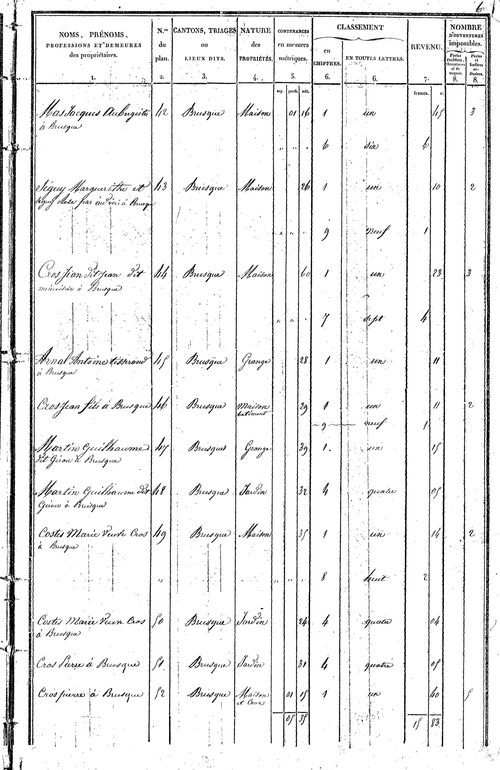 6
NOMS, PRÉNOMS, PROFESSIONS ET DEMEURES des propriétaires. 1. | N.os du plan. 2. | CANTONS, TRIAGES ou LIEUX DITS. 3. | NATURE des PROPRIÉTÉS. 4. | CONTENANCES en mesures métriques. 5. | CLASSEMENT en CHIFFRES. 6. | EN TOUTES LETTRES. 6. | REVENU. 7. | NOMBRE D'OUVERTURES imposables. 8. 8.
arp. perch. mèt. francs. c.
Mas Jacques Aubergiste 42 Brusque Maison 01 16 1 un 45 3
à Brusque " " " 6 six 6
Séguy Marguerithe et 43 Brusque Maison 26 1 un 10 2
Séguy Rose par indivis à Brusque
" " " 9 neuf 1
Cros Jean dit Jean dit 44 Brusque Maison 60 1 un 23 3
à Brusque
" " " 7 sept 4
Arnal Antoine tisserand 45 Brusque Grange 28 1 un 11
à Brusque
Cros Jean fils à Brusque 46 Brusque Maison batiment 29 1 un 11 2
9 neuf 1
Martin Guilhaume 47 Brusque Grange 39 1 un 15
dit Girou à Brusque
Martin Guilhaume dit 48 Brusque Jardin 32 4 quatre 05
Girou à Brusque
Costes Marie Veuve Cros 49 Brusque Maison 35 1 un 14 2
à Brusque
" " " " 8 huit 2
Costes Marie Veuve Cros 50 Brusque Jardin 24 4 quatre 04
à Brusque
Cros Pierre à Brusque 51 Brusque Jardin 31 4 quatre 05
Cros pierre à Brusque 52 Brusque Maison et Cour 01 15 1 un 40 5
05 35 15 83